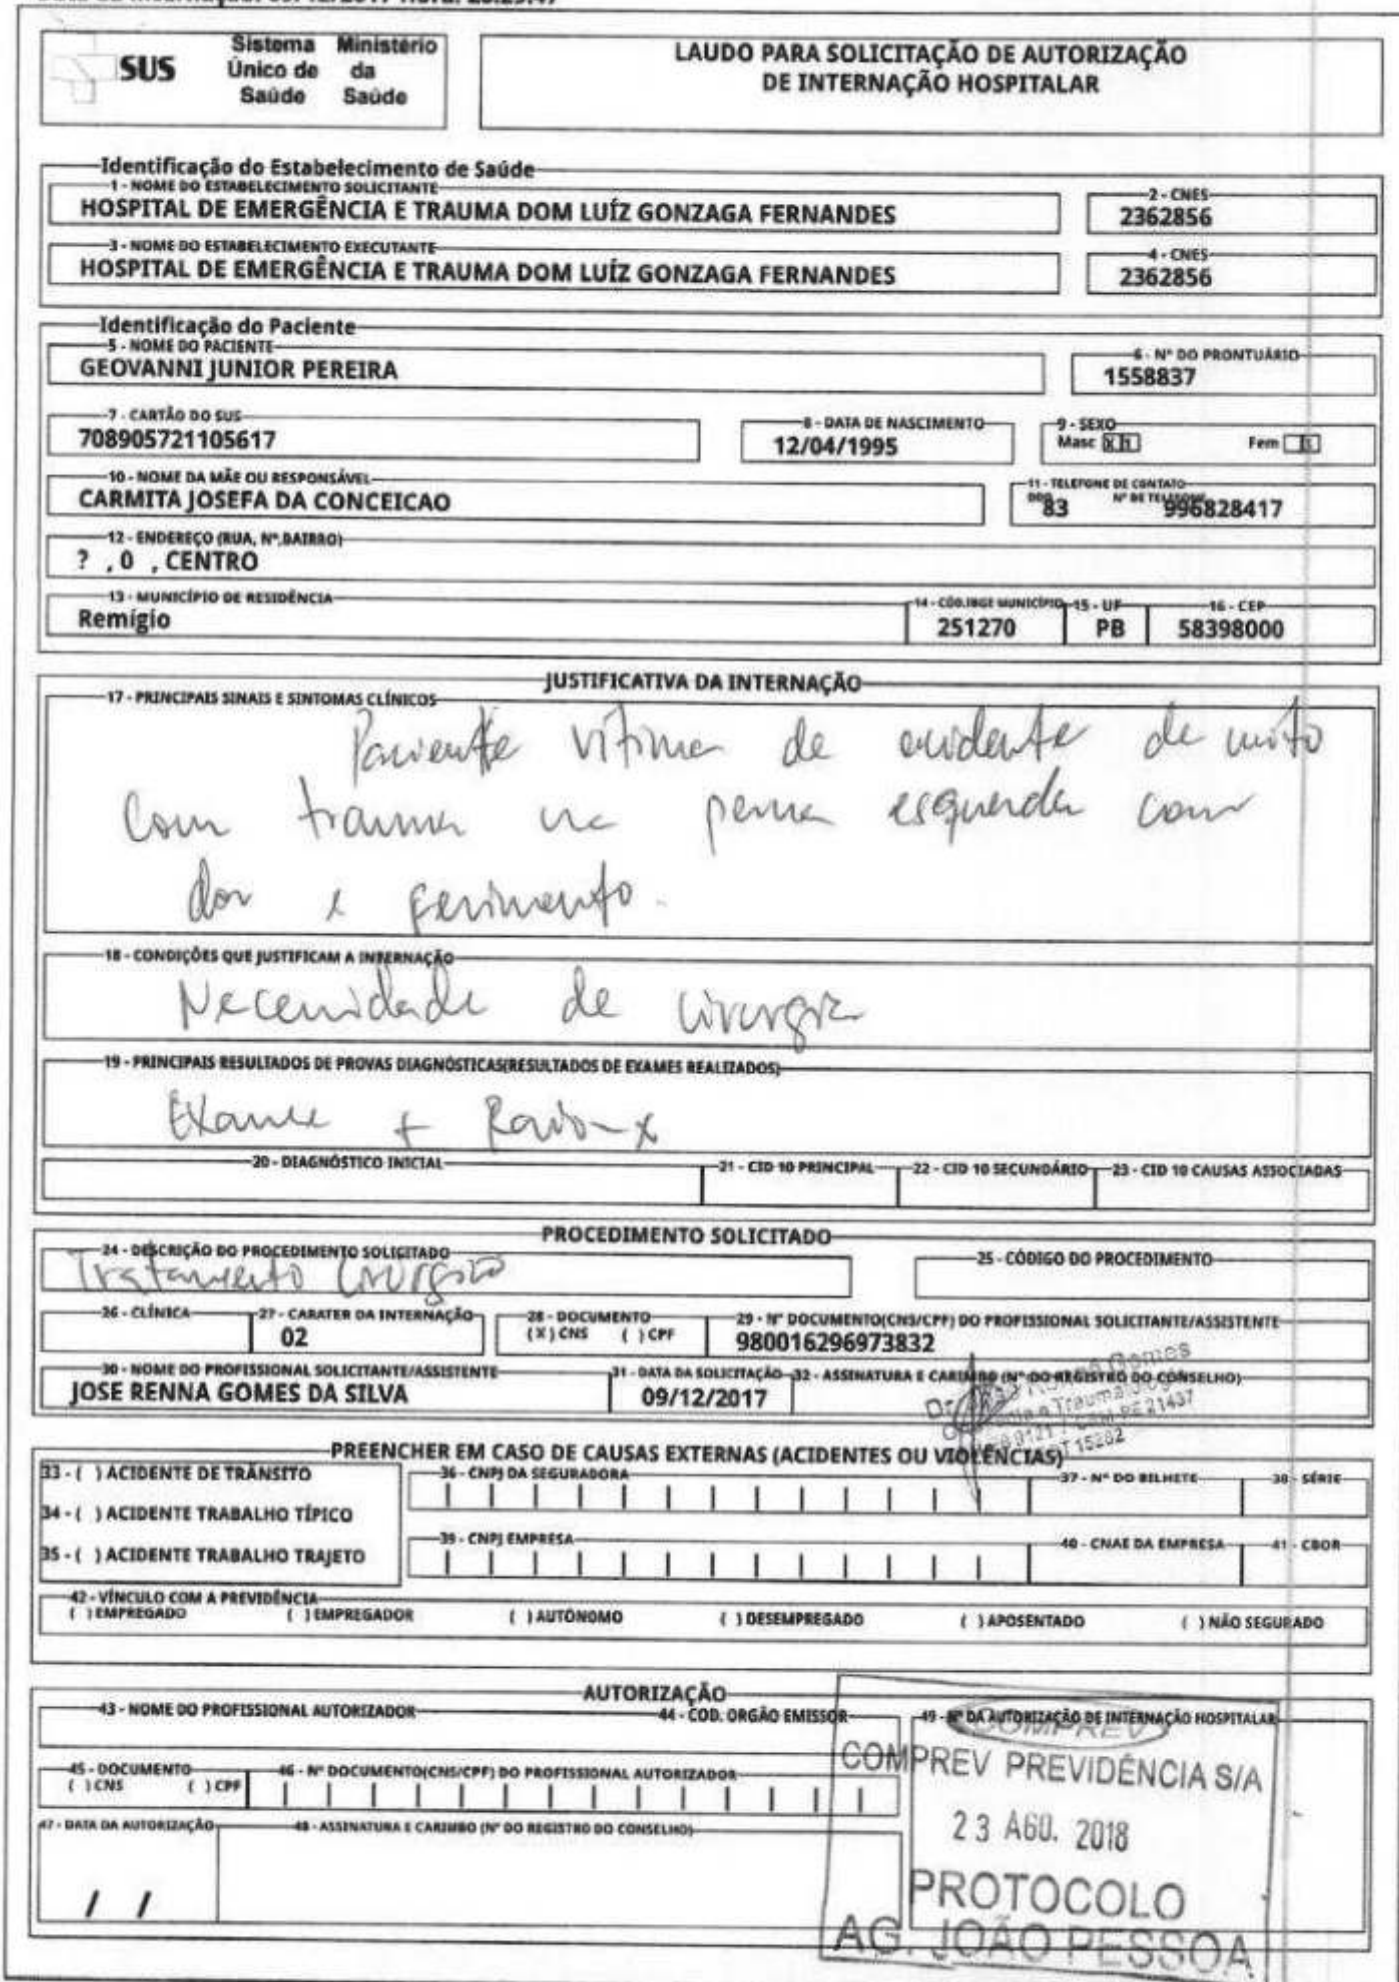 SUS
Sistema Único de Saúde
Ministério da Saúde
LAUDO PARA SOLICITAÇÃO DE AUTORIZAÇÃO
DE INTERNAÇÃO HOSPITALAR
Identificação do Estabelecimento de Saúde
1 - NOME DO ESTABELECIMENTO SOLICITANTE
HOSPITAL DE EMERGÊNCIA E TRAUMA DOM LUÍZ GONZAGA FERNANDES
2 - CNES
2362856
3 - NOME DO ESTABELECIMENTO EXECUTANTE
HOSPITAL DE EMERGÊNCIA E TRAUMA DOM LUÍZ GONZAGA FERNANDES
4 - CNES
2362856
Identificação do Paciente
5 - NOME DO PACIENTE
GEOVANNI JUNIOR PEREIRA
6 - Nº DO PRONTUÁRIO
1558837
7 - CARTÃO DO SUS
708905721105617
8 - DATA DE NASCIMENTO
12/04/1995
9 - SEXO
Masc X 1 Fem
10 - NOME DA MÃE OU RESPONSÁVEL
CARMITA JOSEFA DA CONCEICAO
11 - TELEFONE DE CONTATO
DDD Nº DE TELEFONE
83 996828417
12 - ENDEREÇO (RUA, Nº,BAIRRO)
? , 0 , CENTRO
13 - MUNICÍPIO DE RESIDÊNCIA
Remígio
14 - CÓD.IBGE MUNICÍPIO
251270
15 - UF
PB
16 - CEP
58398000
JUSTIFICATIVA DA INTERNAÇÃO
17 - PRINCIPAIS SINAIS E SINTOMAS CLÍNICOS
Paciente vítima de acidente de moto
com trauma na perna esquerda com
dor e ferimento.
18 - CONDIÇÕES QUE JUSTIFICAM A INTERNAÇÃO
Necessidade de cirurgia
19 - PRINCIPAIS RESULTADOS DE PROVAS DIAGNÓSTICAS(RESULTADOS DE EXAMES REALIZADOS)
Exame + Raio-x
20 - DIAGNÓSTICO INICIAL
21 - CID 10 PRINCIPAL
22 - CID 10 SECUNDÁRIO
23 - CID 10 CAUSAS ASSOCIADAS
PROCEDIMENTO SOLICITADO
24 - DESCRIÇÃO DO PROCEDIMENTO SOLICITADO
Tratamento Cirurgico
25 - CÓDIGO DO PROCEDIMENTO
26 - CLÍNICA
27 - CARATER DA INTERNAÇÃO
02
28 - DOCUMENTO
(X) CNS ( ) CPF
29 - Nº DOCUMENTO(CNS/CPF) DO PROFISSIONAL SOLICITANTE/ASSISTENTE
980016296973832
30 - NOME DO PROFISSIONAL SOLICITANTE/ASSISTENTE
JOSE RENNA GOMES DA SILVA
31 - DATA DA SOLICITAÇÃO
09/12/2017
32 - ASSINATURA E CARIMBO (Nº DO REGISTRO DO CONSELHO)
Gomes
PE 21437
15282
PREENCHER EM CASO DE CAUSAS EXTERNAS (ACIDENTES OU VIOLÊNCIAS)
33 - ( ) ACIDENTE DE TRÂNSITO
34 - ( ) ACIDENTE TRABALHO TÍPICO
35 - ( ) ACIDENTE TRABALHO TRAJETO
36 - CNPJ DA SEGURADORA
37 - Nº DO BILHETE
38 - SÉRIE
39 - CNPJ EMPRESA
40 - CNAE DA EMPRESA
41 - CBOR
42 - VÍNCULO COM A PREVIDÊNCIA
( ) EMPREGADO ( ) EMPREGADOR ( ) AUTÔNOMO ( ) DESEMPREGADO ( ) APOSENTADO ( ) NÃO SEGURADO
AUTORIZAÇÃO
43 - NOME DO PROFISSIONAL AUTORIZADOR
44 - COD. ORGÃO EMISSOR
49 - Nº DA AUTORIZAÇÃO DE INTERNAÇÃO HOSPITALAR
45 - DOCUMENTO
( ) CNS ( ) CPF
46 - Nº DOCUMENTO(CNS/CPF) DO PROFISSIONAL AUTORIZADOR
47 - DATA DA AUTORIZAÇÃO
/ /
48 - ASSINATURA E CARIMBO (Nº DO REGISTRO DO CONSELHO)
COMPREV
COMPREV PREVIDÊNCIA S/A
23 AGO. 2018
PROTOCOLO
AG. JOÃO PESSOA